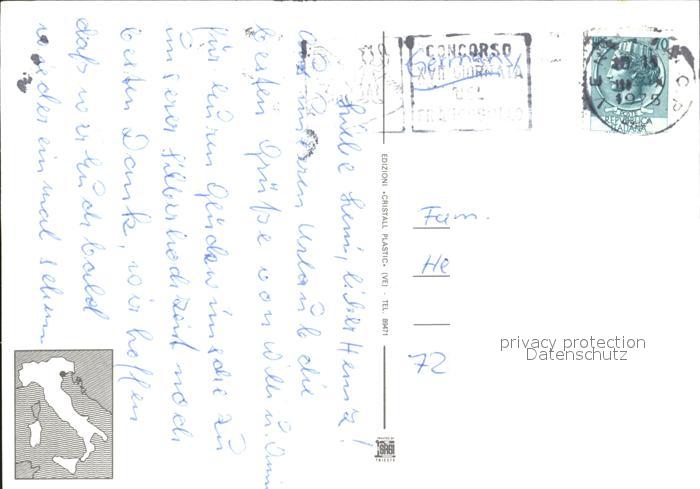 Liebe Leni, lieber Heinz!
Aus unserem Urlaub die
besten Grüße von Willi u. Anni
für Euren Glückwünsche zu
unserer Silberhochzeit noch
besten Dank, wir hoffen
daß wir Euch bald
wieder einmal sehen
Germany
CONCORSO
XVII GIORNATA
DEL
FRANCOBOLLO
70
1975
REPUBBLICA
ITALIANA
EDIZIONI «CRISTALL PLASTIC» (VE) - TEL. 89471
Fam.
He
72
privacy protection
Datenschutz
PRINTED BY
SAGI
TRIESTE